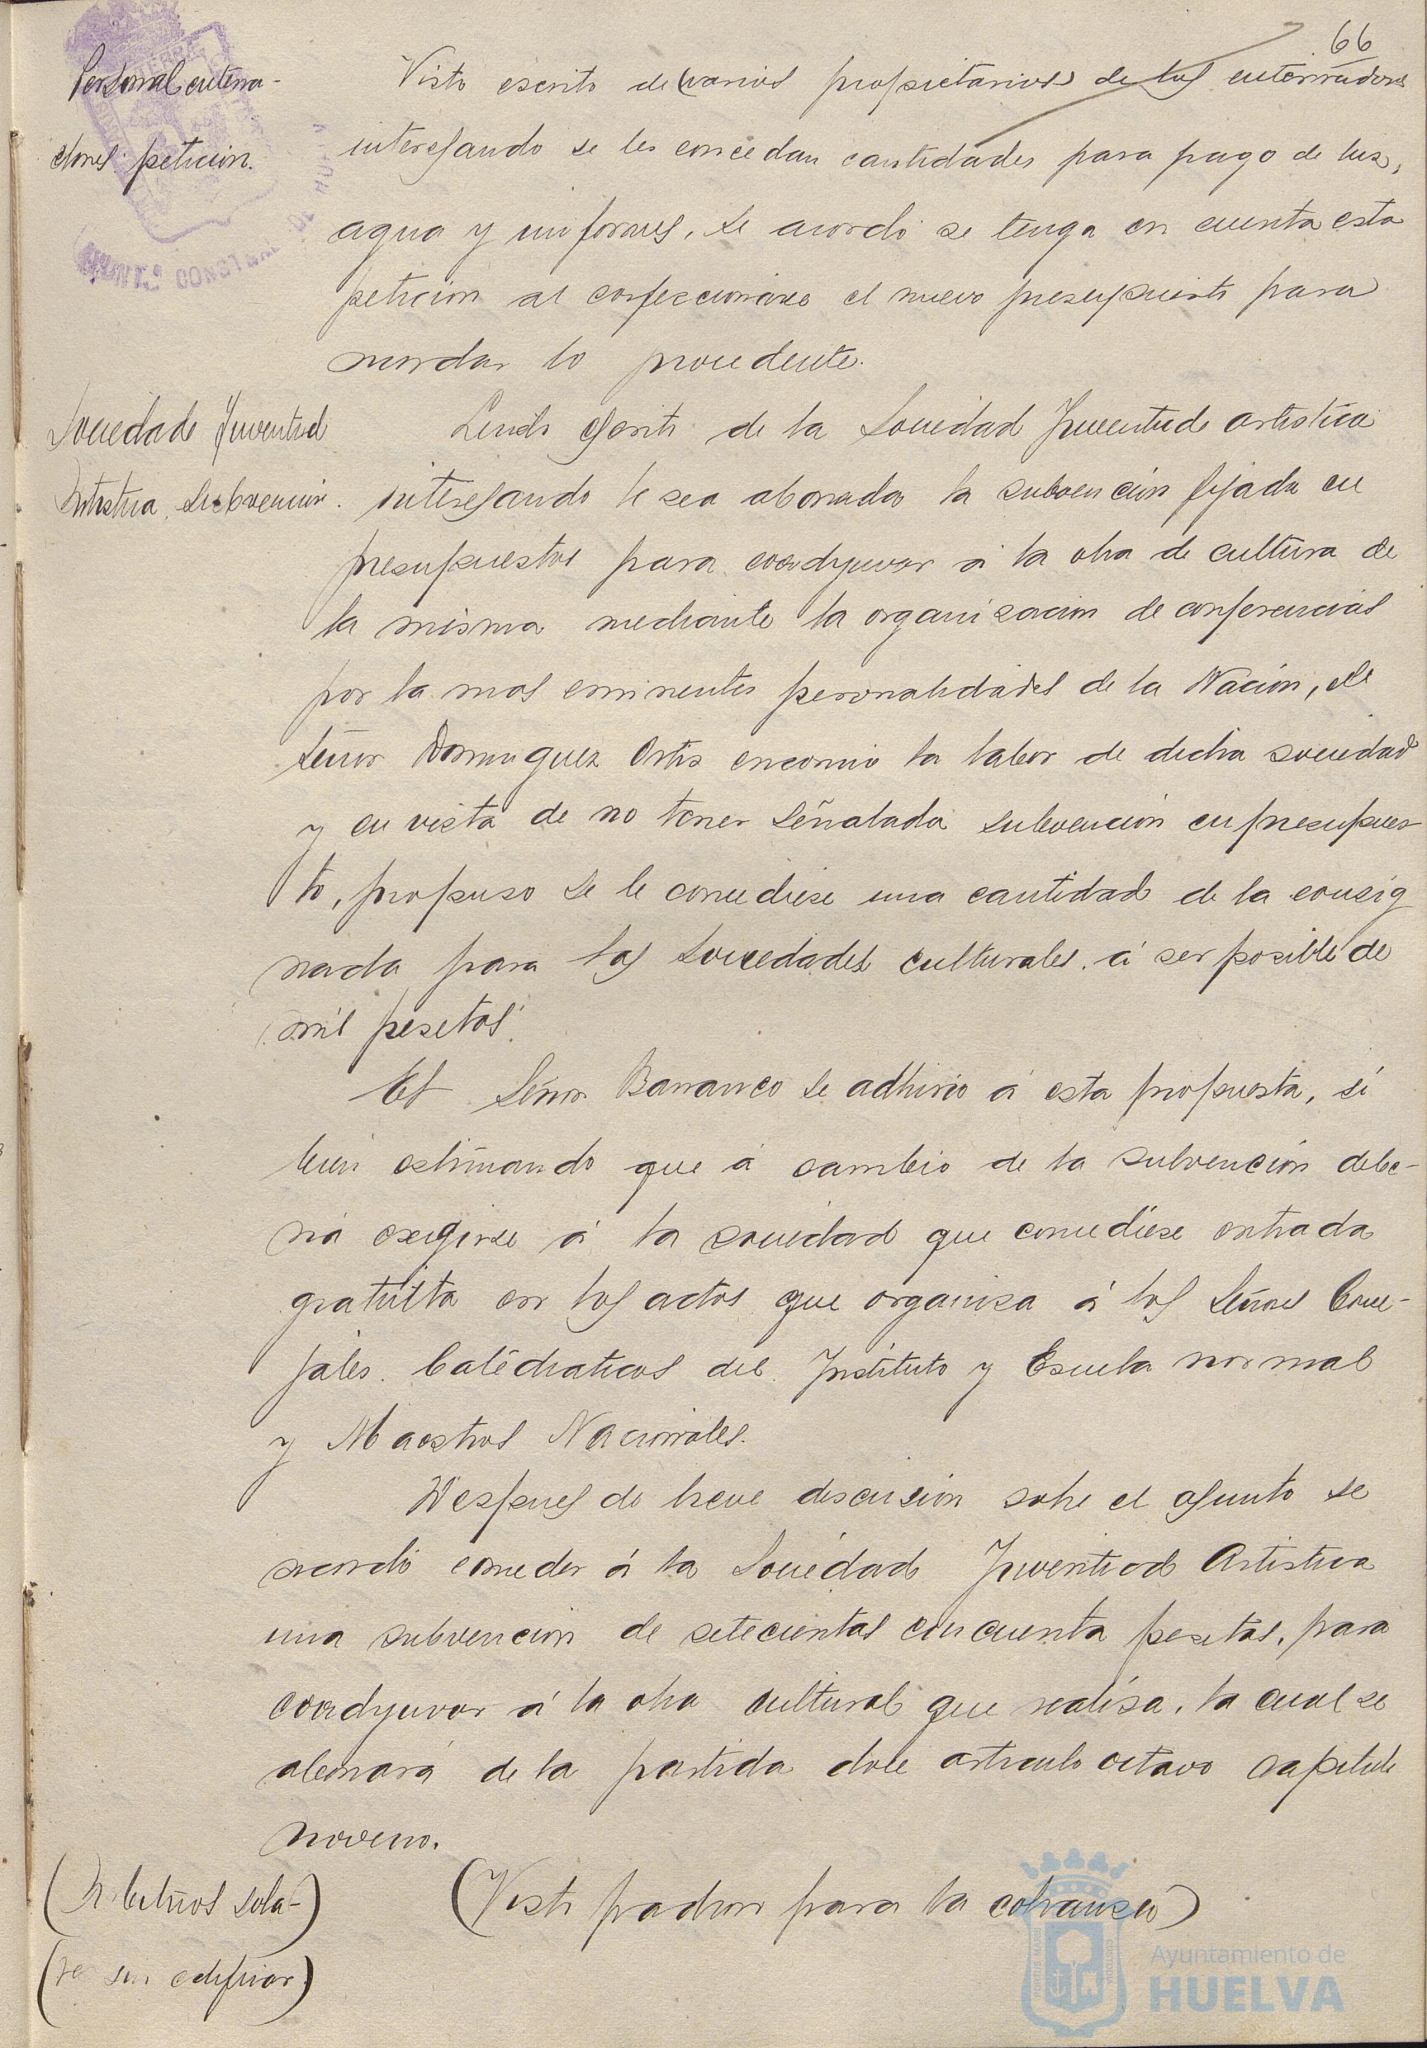 66
Personal enterra-
dores petición.
Visto escrito de (varios propietarios de los enterradores
interesando se les concedan cantidades para pago de luz,
agua y uniformes, se acordó se tenga en cuenta esta
petición al confeccionarse el nuevo presupuesto para
acordar lo procedente.
Sociedad Juventud
Artística. Subvención.
Leido escrito de la Sociedad Juventud artística
interesando le sea abonada la subvención fijada en
presupuestos para coadyuvar á la obra de cultura de
la misma mediante la organización de conferencias
por la mas eminentes personalidades de la Nación, el
Señor Dominguez Ortiz encomio la labor de dicha sociedad
y en vista de no tener señalada subvención en presupues-
to, propuso se le concediese una cantidad de la consig
nada para las Sociedades culturales. á ser posible de
mil pesetas.
El Señor Barranco se adhirio á esta propuesta, si
bien estimando que á cambio de la subvención debe-
ria exigirse á la sociedad que concediese entrada
gratuita en los actos que organiza á los Señores Conce-
jales. Catédraticos del Instituto y Escuela normal
y Maestros Nacionales.
Despues de breve discusión sobre el asunto se
acordó conceder á la Sociedad Juventud Artistica
una subvencion de setecientas cincuenta pesetas, para
coadyuvar á la obra cultural que realiza, la cual se
abonará de la partida doce articulo octavo capitulo
noveno.
(Arbitrios sola-)
(res sin edificar.)
(Visto padron para la cobranza)
Ayuntamiento de
HUELVA